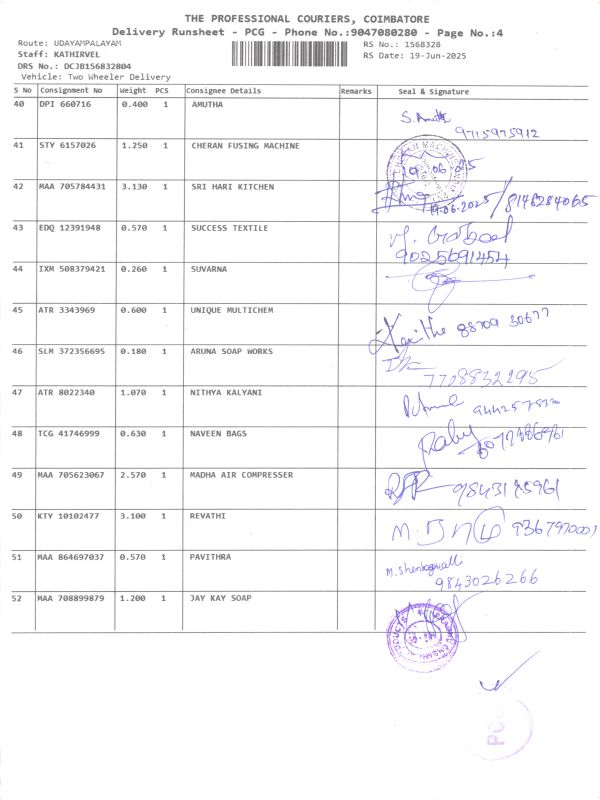 THE PROFESSIONAL COURIERS, COIMBATORE
Delivery Runsheet - PCG - Phone No.:9047080280 - Page No.:4
Route: UDAYAMPALAYAM
Staff: KATHIRVEL
DRS No.: DCJ8156832804
Vehicle: Two Wheeler Delivery
RS No.: 1568328
RS Date: 19-Jun-2025
S No Consignment No Weight PCS Consignee Details Remarks Seal & Signature
40 DPI 660716 0.400 1 AMUTHA
9715975912
41 STY 6157026 1.250 1 CHERAN FUSING MACHINE
42 MAA 705784431 3.130 1 SRI HARI KITCHEN
19.06.2025/8148284065
43 EDQ 12391948 0.570 1 SUCCESS TEXTILE
9025691454
44 IXM 508379421 0.260 1 SUVARNA
45 ATR 3343969 0.600 1 UNIQUE MULTICHEM
46 SLM 372356695 0.180 1 ARUNA SOAP WORKS
7708832295
47 ATR 8022340 1.070 1 NITHYA KALYANI
48 TCG 41746999 0.630 1 NAVEEN BAGS
49 MAA 705623067 2.570 1 MADHA AIR COMPRESSER
50 KTY 10102477 3.100 1 REVATHI
51 MAA 864697037 0.570 1 PAVITHRA
9843026266
52 MAA 708899879 1.200 1 JAY KAY SOAP